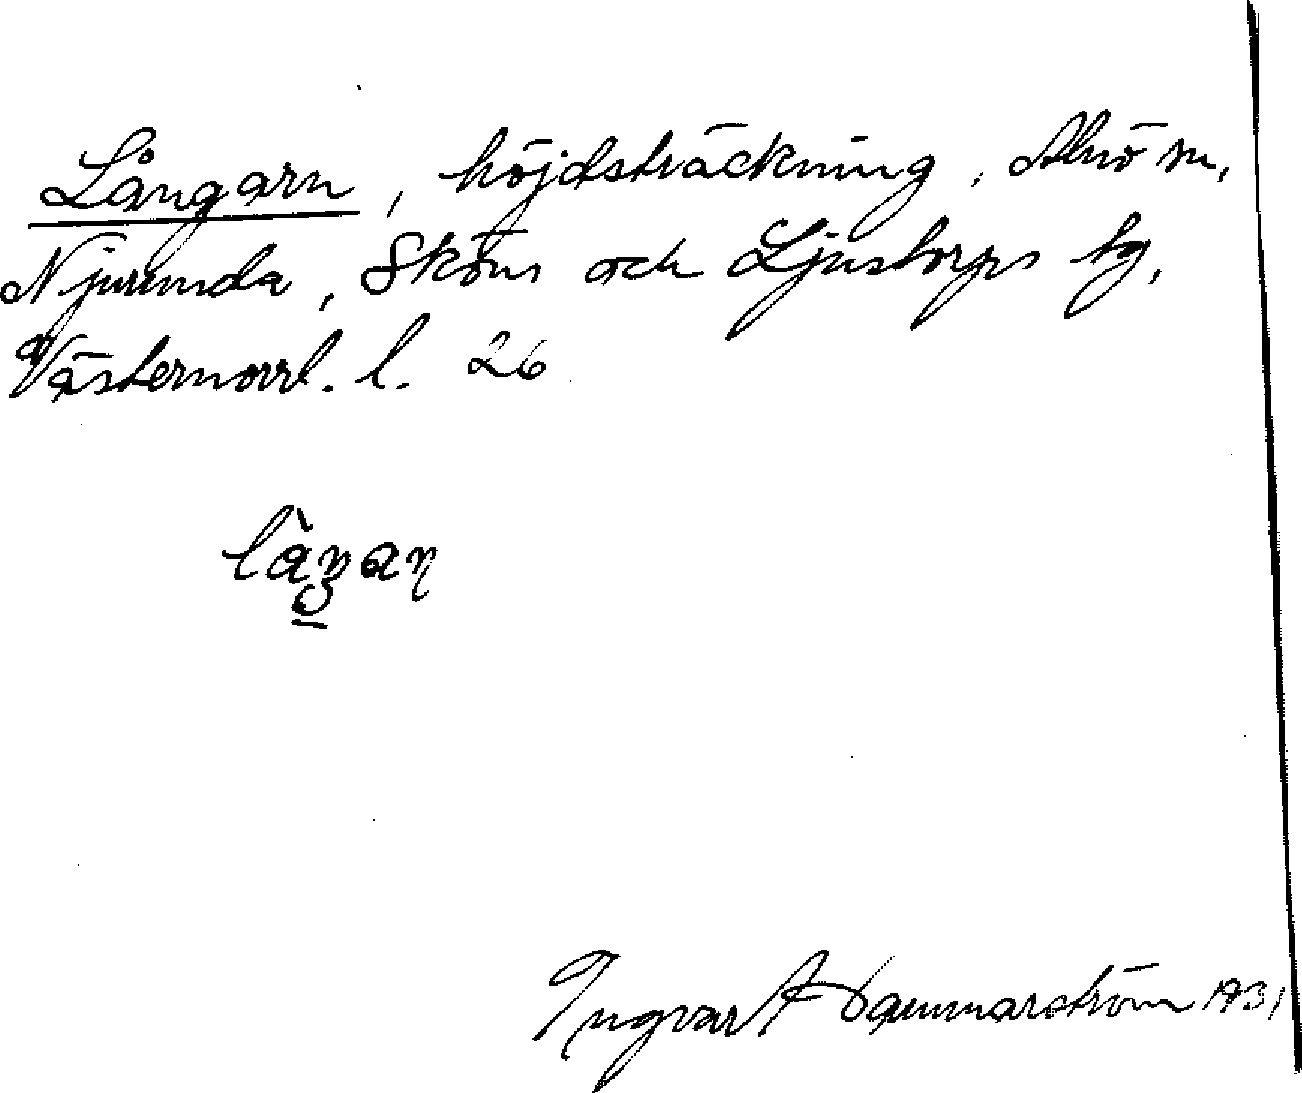 Långarn, höjdsträckning, Alnö sn,
Njurunda, Sköns och Ljustorps tg,
Västernorrl. l. 26
Ingvar Hammarström 1931